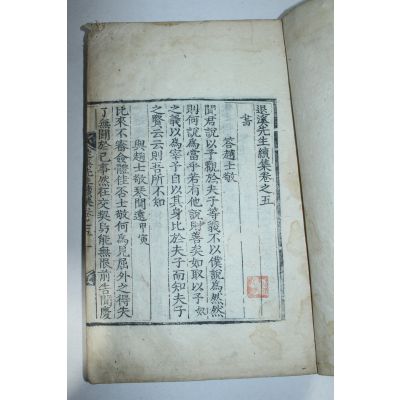 退溪先生續集卷之五
書
答趙士敬
聞君說以予觀於夫子等義不以僕說爲然然
則何說爲當乎若有他說則善矣如取以予奴
之義以爲宰予自以其身比於夫子而知夫子
之賢云云則吾所不知
與趙士敬琴聞遠甲寅
比來不審僉體佳否士敬何爲見屈外之得失
了無關於己事然在交契烏能無限前告聞慶